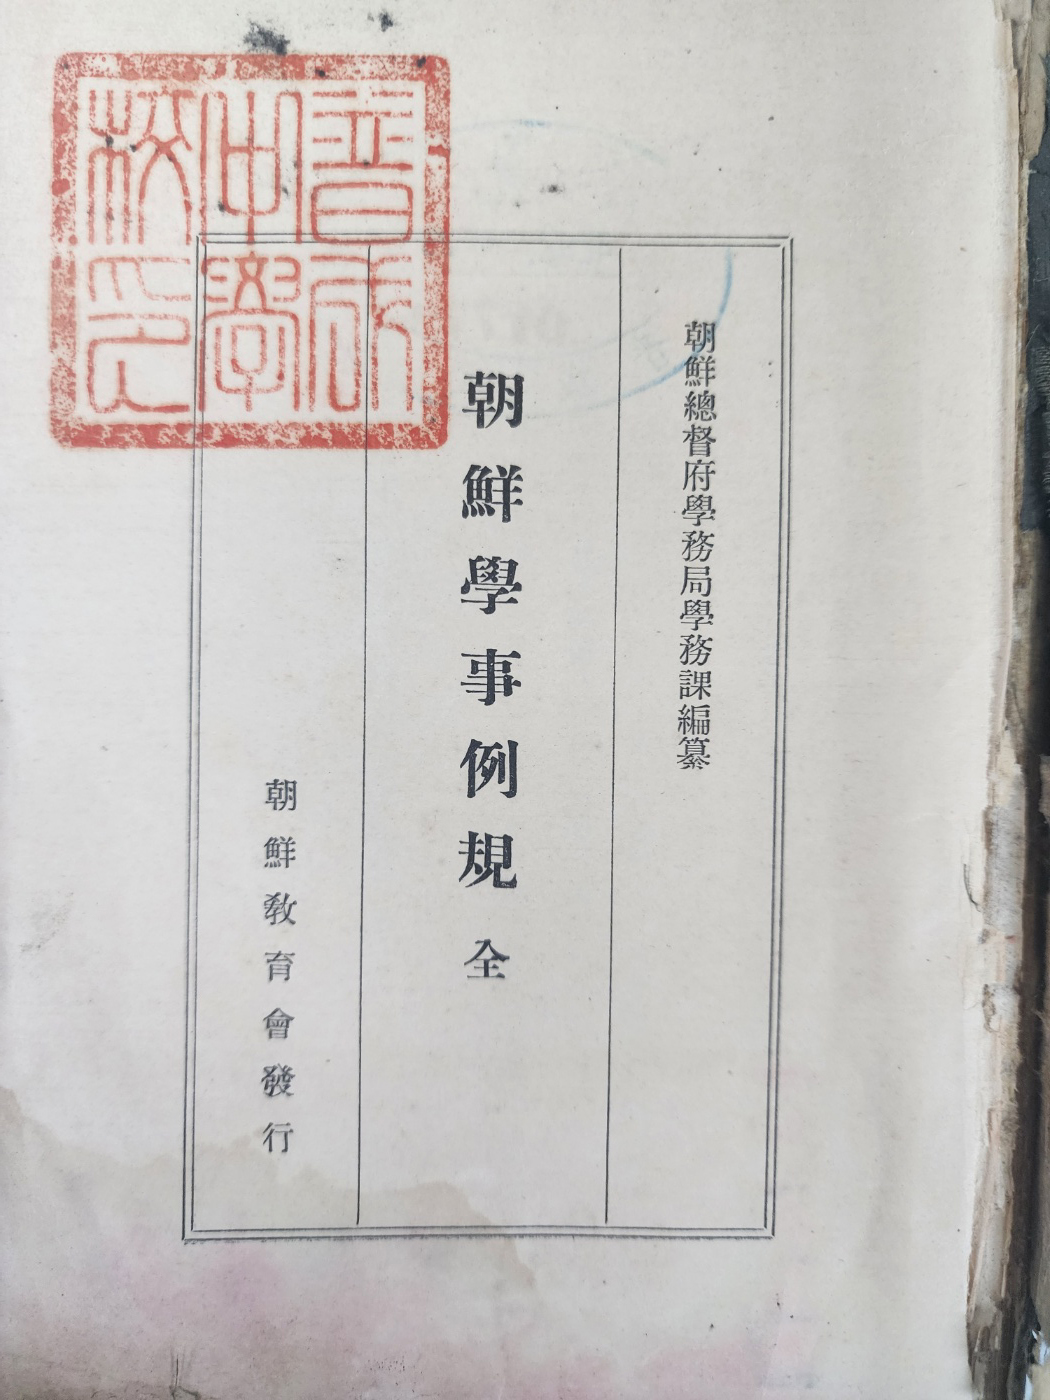 普成
中學
校印
朝鮮總督府學務局學務課編纂
朝鮮學事例規 全
朝鮮敎育會發行